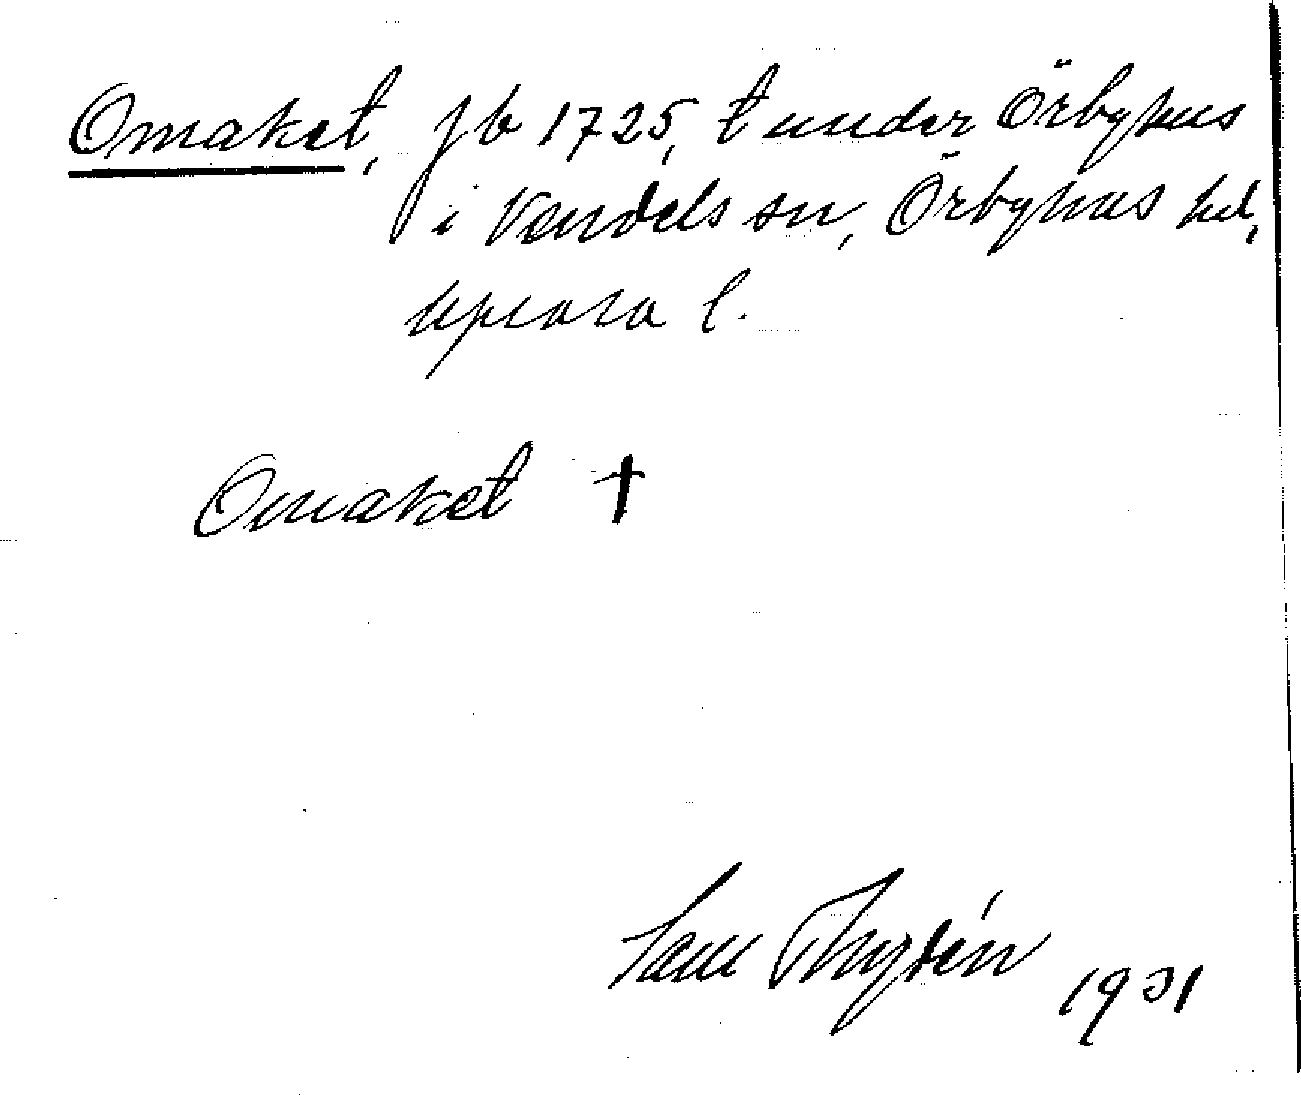 Omaket, jb 1725, t under Örbyhus
i Vendels sn, Örbyhus hd,
Upsala l.
Omaket †
Sam Thydén 1931